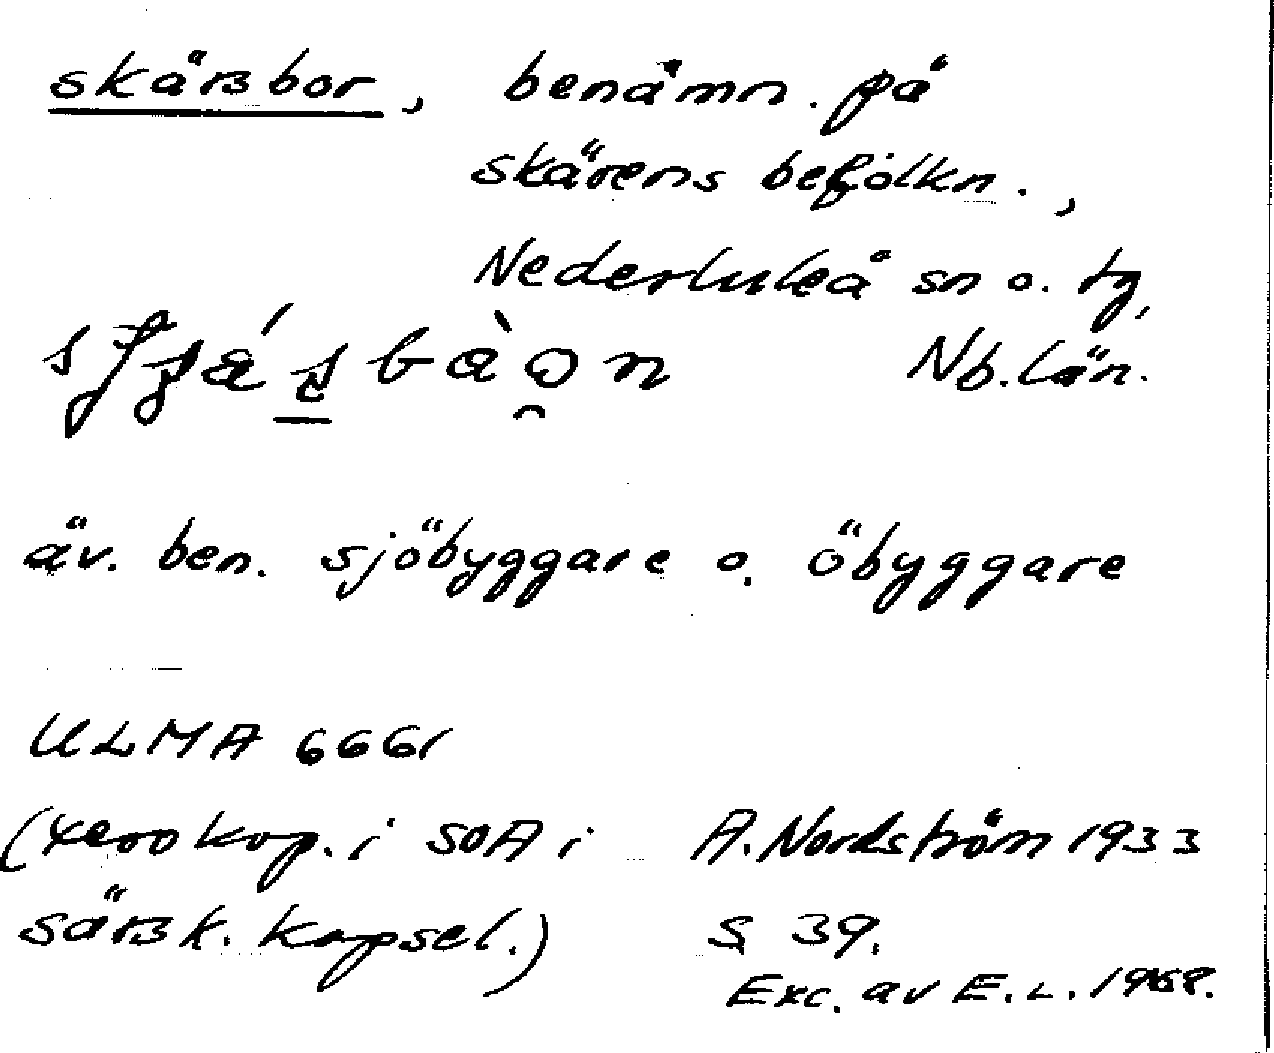 skärsbor, benämn. på
skärens befolkn.,
Nederluleå sn o. tg,
Nb. län.
äv. ben. sjöbyggare o. öbyggare
ULMA 6661
(xerokop. i SOA i
särsk. kapsel.)
A. Nordström 1933
S 39.
Exc. av E. L. 1968.